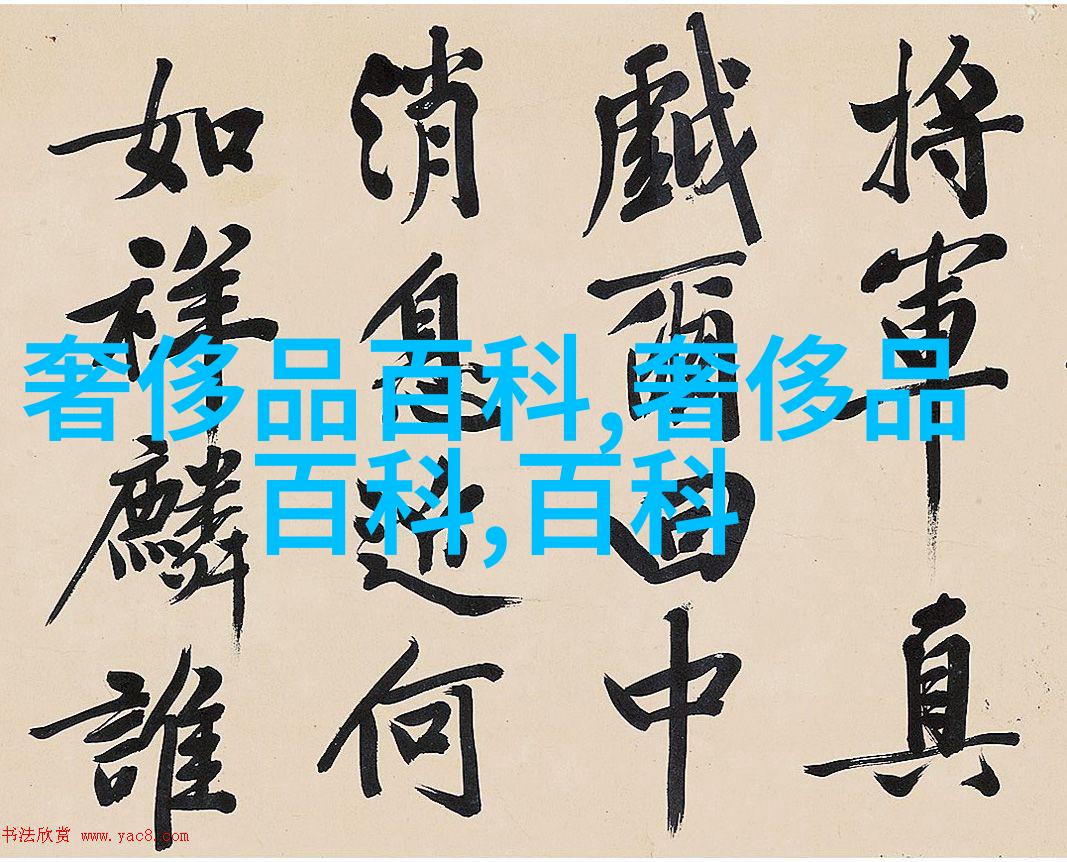 将軍真
戲回中
消息何
如祥麟誰
奢侈品百科,奢侈品
百科,百科
书法欣赏 www.yac8.com